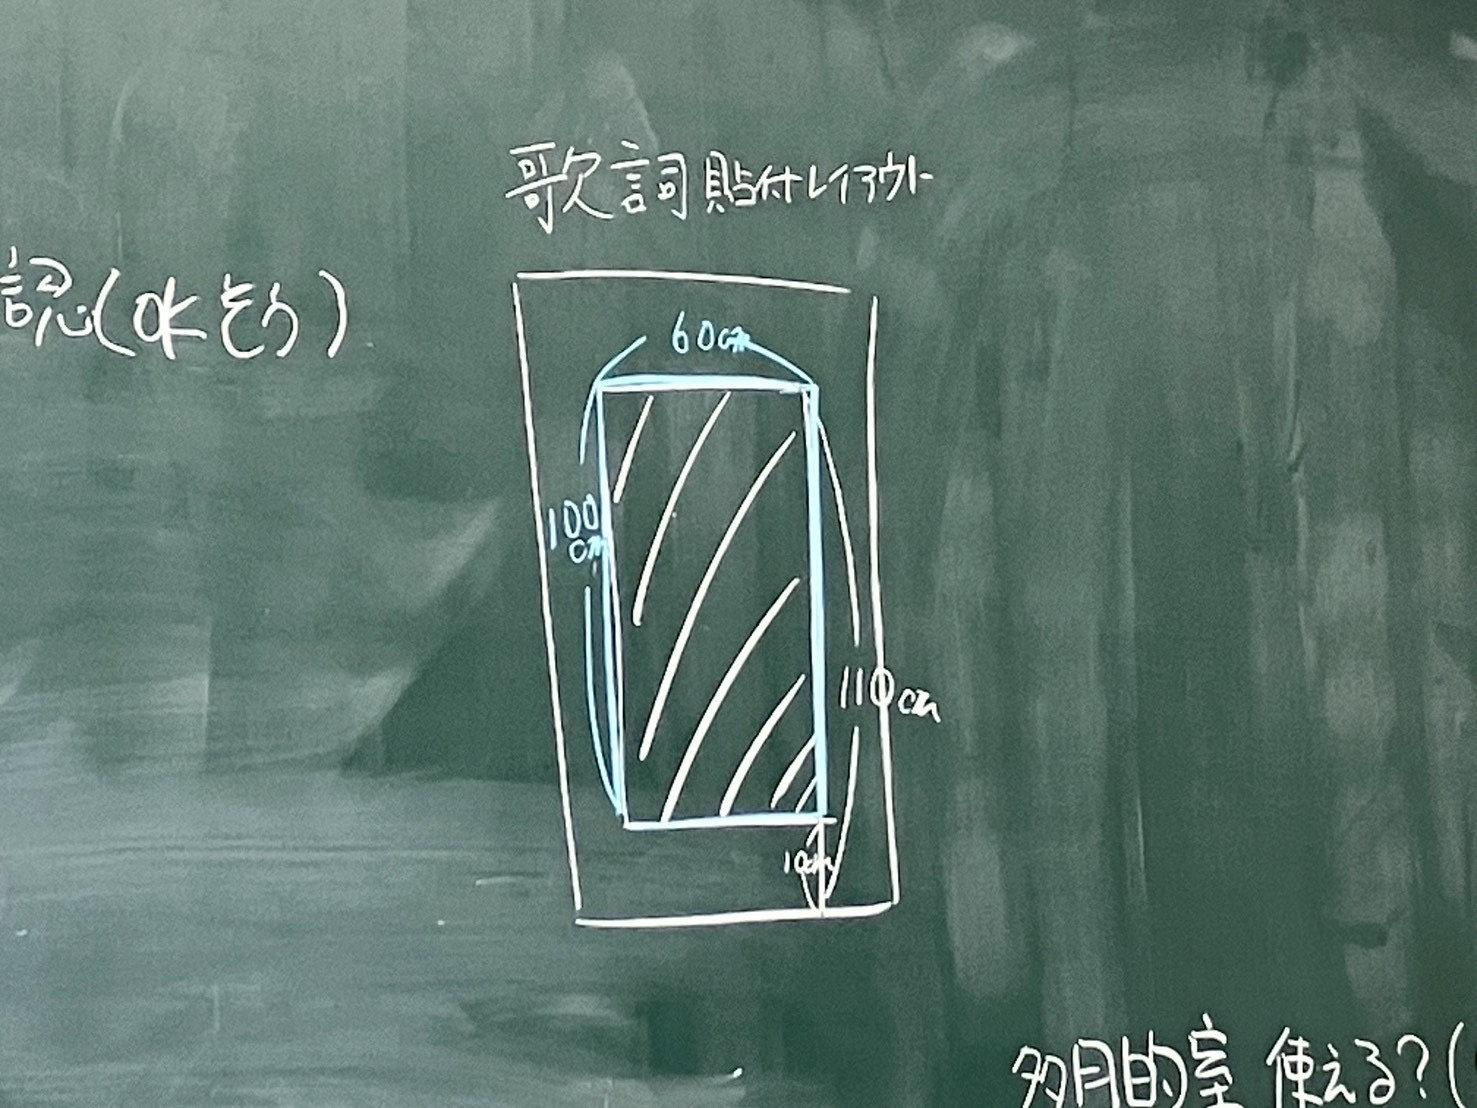 歌詞貼付レイアウト
認(水そう)
60cm
100
cm
110cm
10cm
多目的室 使える?(